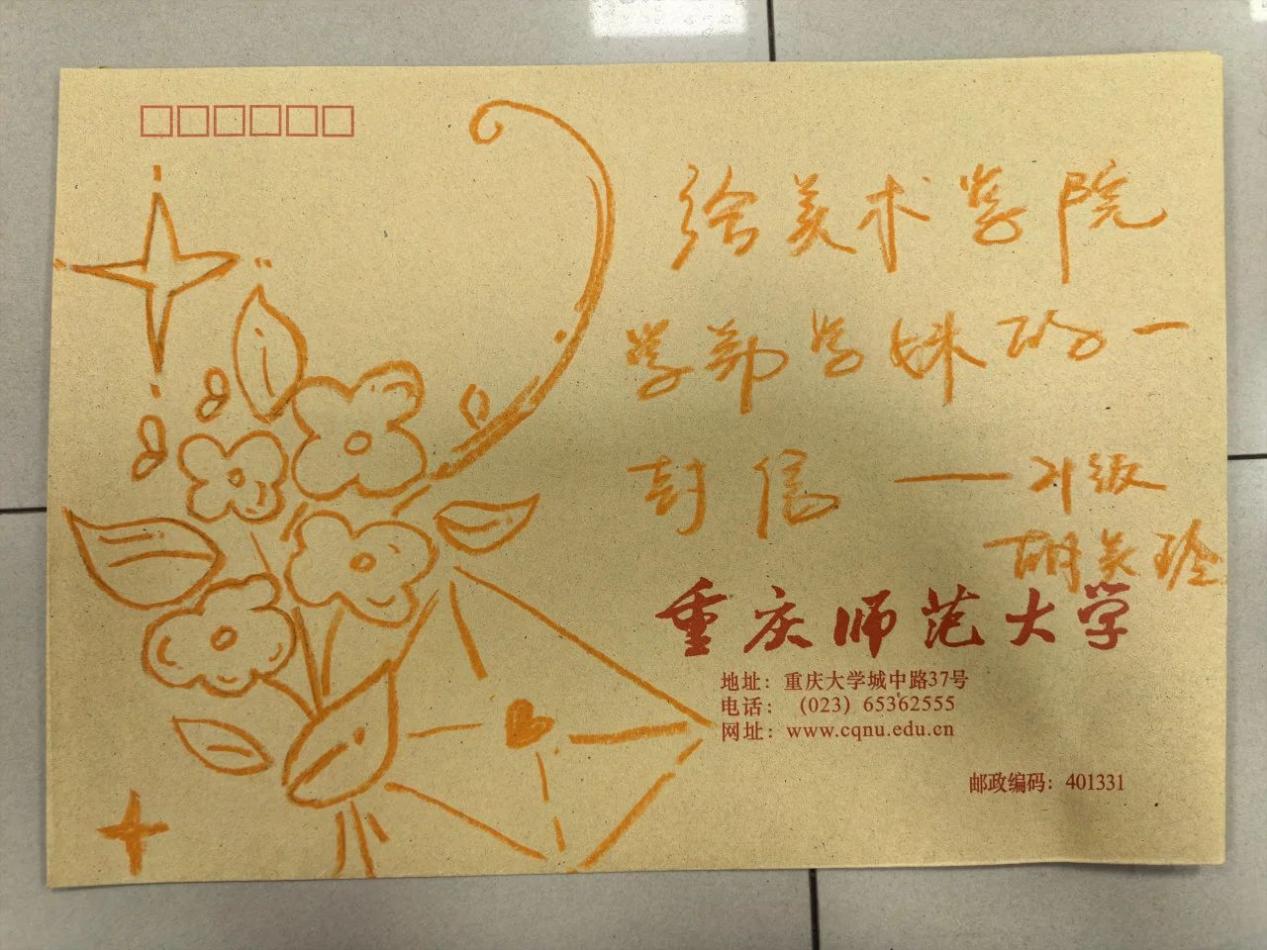 给美术学院
学弟学妹的一
封信——21级
胡美玲
重庆师范大学
地址：重庆大学城中路37号
电话：（023）65362555
网址：www.cqnu.edu.cn
邮政编码：401331